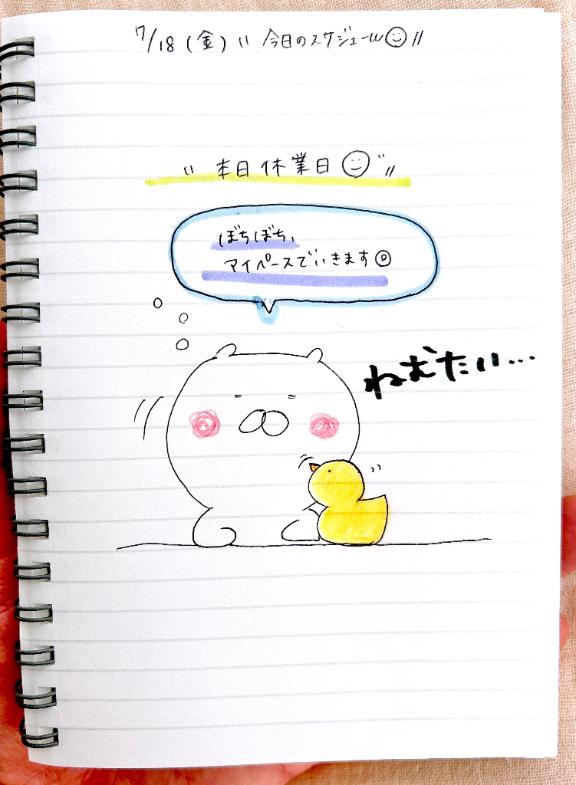 7/18(金) 〃 今日のスケジュール☺〃
〃 本日休業日☺〃
ぼちぼち、
マイペースでいきます☺
ねむたい…